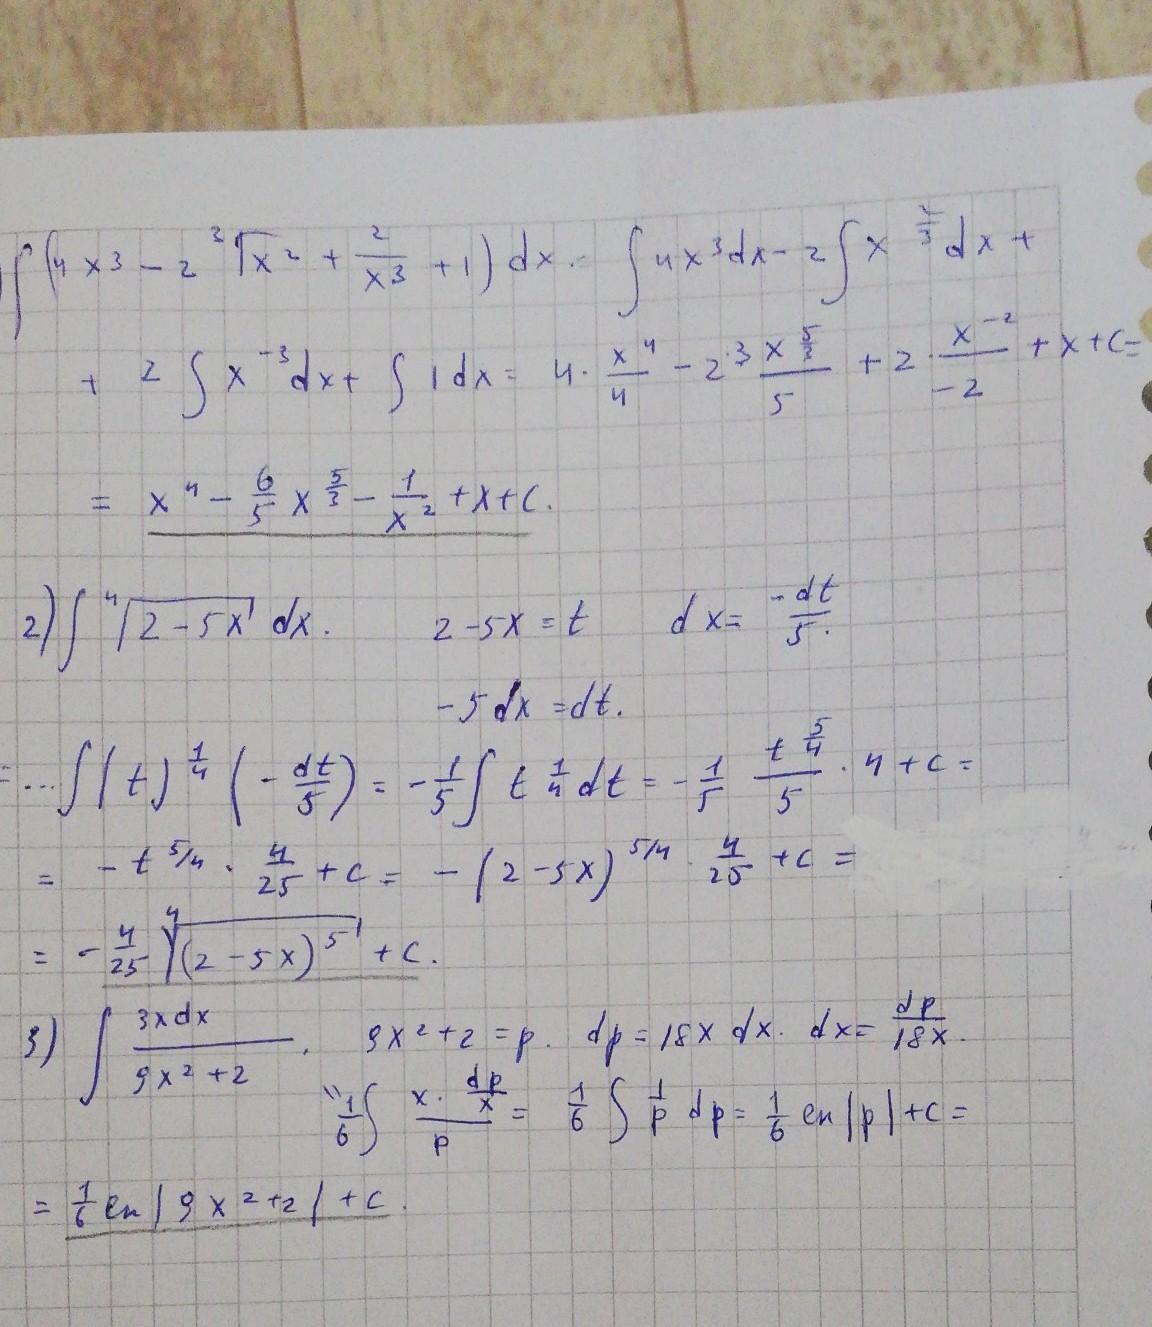 ∫(4x³ - 2∛x² + 2/x³ + 1) dx = ∫4x³dx - 2∫x^(2/3) dx +
+ 2∫x⁻³dx + ∫1dx = 4 · x⁴/4 - 2·3 x^(5/3)/5 + 2 · x⁻²/-2 + x + c =
= x⁴ - 6/5 x^(5/3) - 1/x² + x + c.
2) ∫∜(2 - 5x) dx. 2 - 5x = t dx = -dt/5.
-5dx = dt.
= ...∫(t)^(1/4) (-dt/5) = -1/5 ∫t^(1/4) dt = -1/5 t^(5/4)/5 · 4 + c =
= -t^(5/4) · 4/25 + c = -(2 - 5x)^(5/4) · 4/25 + c =
= -4/25 ∜(2 - 5x)⁵ + c.
3) ∫ 3xdx/(9x² + 2). 9x² + 2 = p. dp = 18x dx. dx = dp/18x.
1/6 ∫ (x · dp/x)/p = 1/6 ∫ 1/p dp = 1/6 ln|p| + c =
= 1/6 ln|9x² + 2| + c.